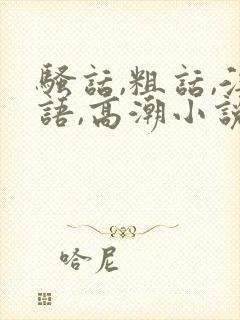 騷話,粗話,
語,高潮小說
哈尼